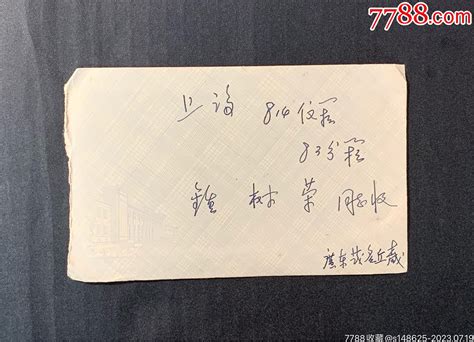 7788.com
上海 814信箱
83分箱
钟树荣 同志收
广东茂名丘
7788收藏@s148625-2023.07.19